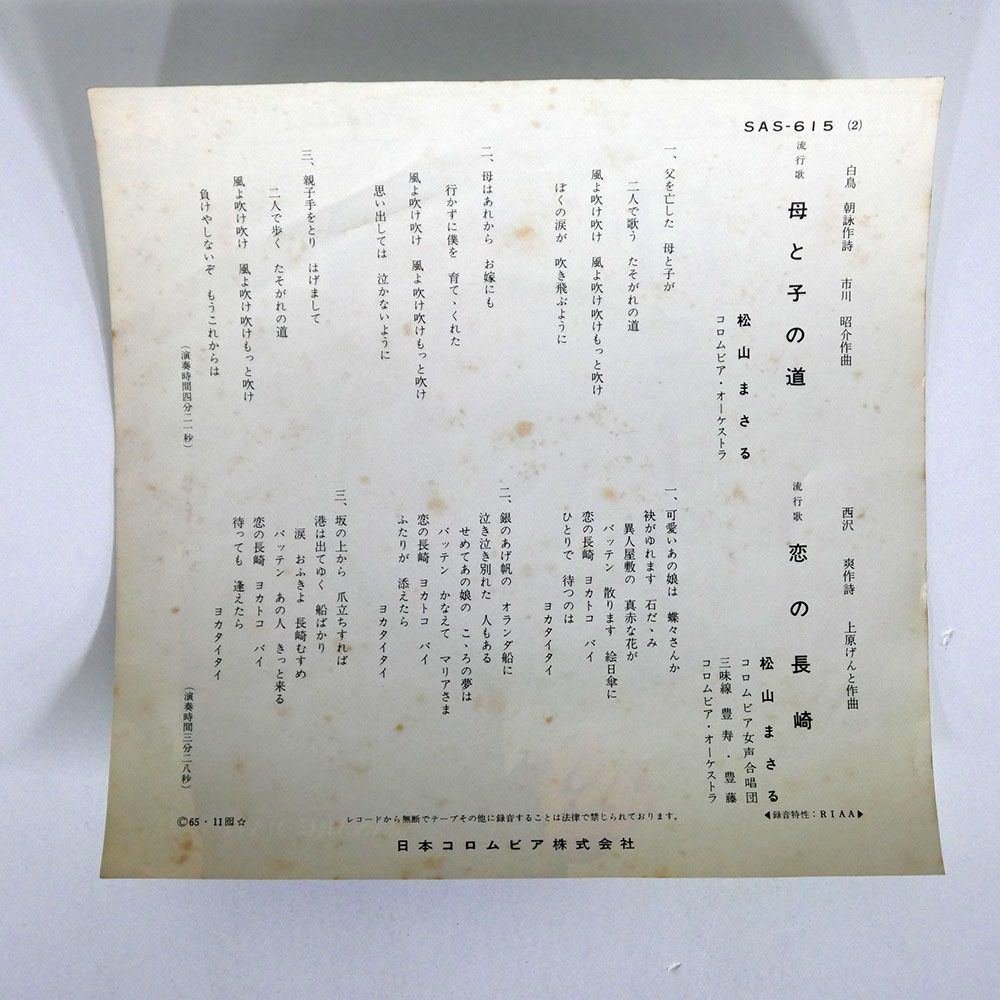 SAS-615 (2)
流行歌
母と子の道
白鳥 朝詠作詩 市川 昭介作曲
松山まさる
コロムビア・オーケストラ
一、父を亡した 母と子が
二人で歌う たそがれの道
風よ吹け吹け 風よ吹け吹けもっと吹け
ぼくの涙が 吹き飛ぶように
二、母はあれから お嫁にも
行かずに僕を 育てゝくれた
風よ吹け吹け 風よ吹け吹けもっと吹け
思い出しては 泣かないように
三、親子手をとり はげまして
二人で歩く たそがれの道
風よ吹け吹け 風よ吹け吹けもっと吹け
負けやしないぞ もうこれからは
(演奏時間四分二一秒)
流行歌
恋の長崎
西沢 爽作詩 上原げんと作曲
松山まさる
コロムビア女声合唱団
三味線 豊寿・豊藤
コロムビア・オーケストラ
一、可愛いあの娘は 蝶々さんか
袂がゆれます 石だゝみ
異人屋敷の 真赤な花が
バッテン 散ります 絵日傘に
恋の長崎 ヨカトコ バイ
ひとりで 待つのは
ヨカタイタイ
二、銀のあげ帆の オランダ船に
泣き泣き別れた 人もある
せめてあの娘の こゝろの夢は
バッテン かなえて マリアさま
恋の長崎 ヨカトコ バイ
ふたりが 添えたら
ヨカタイタイ
三、坂の上から 爪立ちすれば
港は出てゆく 船ばかり
涙 おふきよ 長崎むすめ
バッテン あの人 きっと来る
恋の長崎 ヨカトコ バイ
待っても 逢えたら
ヨカタイタイ
(演奏時間三分二八秒)
◀録音特性:RIAA▶
レコードから無断でテープその他に録音することは法律で禁じられております。
Ⓒ65・11 ☆
日本コロムビア株式会社